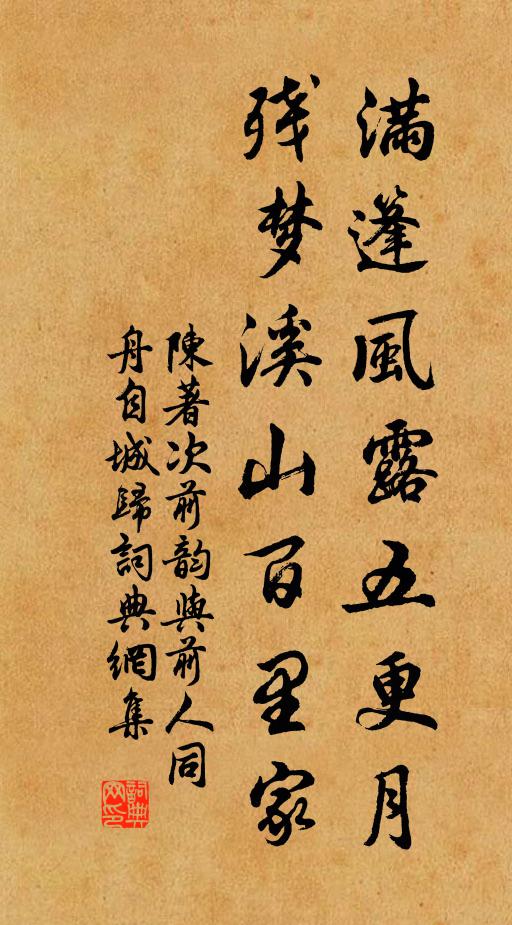 滿蓬風露五更月
残梦溪山百里家
陳著次前韵與前人同
舟自城歸詞典網集
詞典
网印